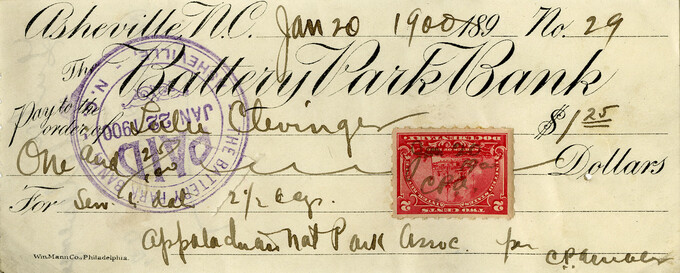 Asheville, N.C. Jan 20 1900 189 No. 29
The Battery Park Bank
Pay to the order of Clevinger $1 25
One and 25/100 Dollars
For 2 1/2 days
Appalachian Nat Park Assoc. per
C.P. Ambler
Wm. Mann Co. Philadelphia.
THE BATTERY PARK BANK
PAID
JAN 22 1900
ASHEVILLE, N.C.
TWO CENTS
2 2
DOCUMENTARY